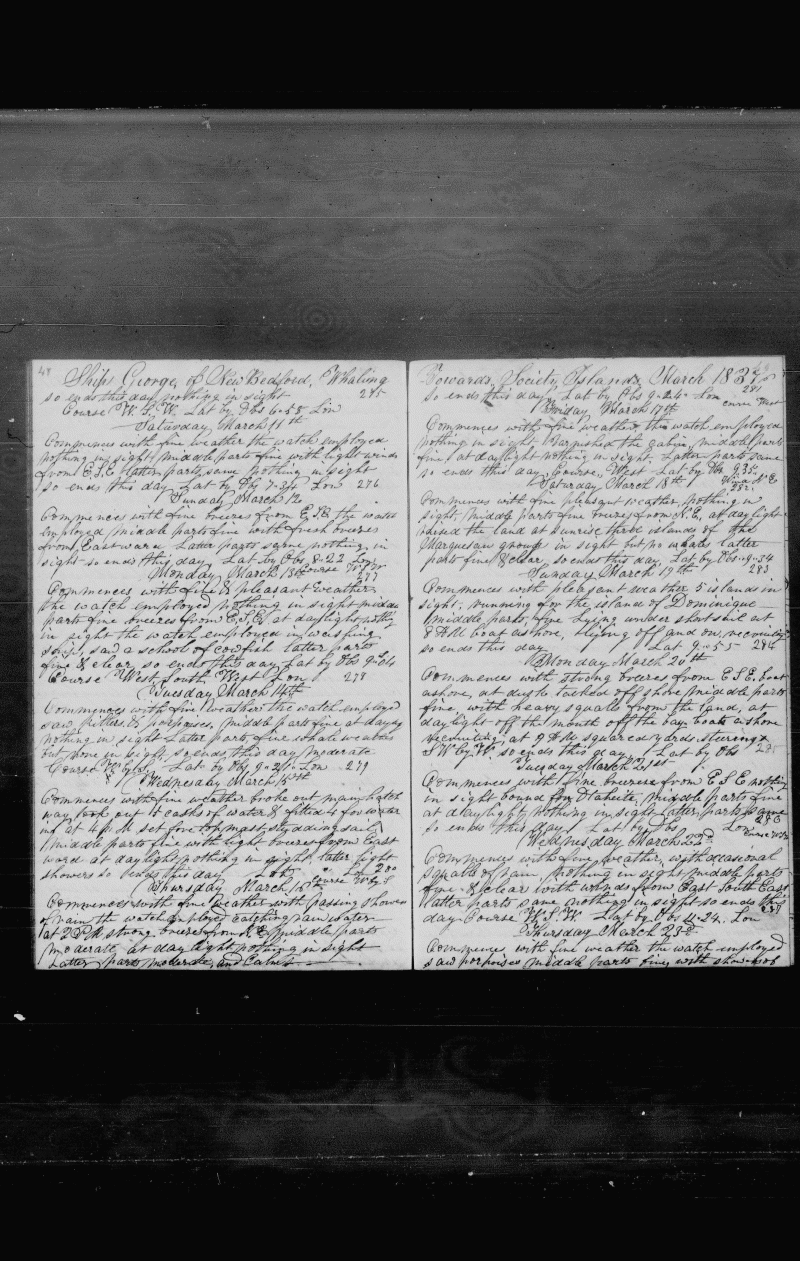 48
Ship George, of New Bedford, Whaling
so ends this day nothing in sight 275
Course W.S.W. Lat by Obs 6-58 Lon
Saturday March 11th
Commences with fine weather the watch employed
nothing in sight middle parts fine with light winds
from E.S.E latter parts same nothing in sight
so ends this day Lat by Obs 7-34 Lon 276
Sunday March 12
Commences with fine breezes from E.S.E. the watch
employed middle parts fine with fresh breezes
from Eastward Latter parts same nothing in
sight so ends this day Lat by Obs 8-22 Lon
Monday March 13th Course
277
Commences with fine & pleasant weather
the watch employed nothing in sight middle
parts fine breezes from E.S.E. at daylight nothing
in sight the watch employed in
saw a school of cowfish latter parts
fine & clear, so ends this day Lat by Obs 9-04
Course West South West Lon 278
Tuesday March 14th
Commences with fine weather the watch employed
saw killers & porpoises, middle parts fine at daylight
nothing in sight Latter parts fine
but none in sight, so ends this day moderate
Course Lat by Obs 9-21 Lon 279
Wednesday March 15th
Commences with fine weather broke out main hatch
way took out 15 casks of water & filled 4 for water
ing at 4 PM set fore topmast studding sail
middle parts fine with light breezes from East
ward at daylight nothing in sight latter light
showers so ends this day Lat Lon 280
Thursday March 16th Course W by S
Commences with fine weather with passing showers
of rain the watch employed catching rain water
at 2 P.M. strong breezes from middle parts
moderate, at day light nothing in sight
Latter parts moderate, and Calm
Towards Society Islands March 1837
so ends this day Lat by Obs 9-24 Lon 281
Course West
Friday March 17th
Commences with fine weather the watch employed
nothing in sight Varnished the cabin, middle parts
fine at daylight nothing in sight Latter parts same
so ends this day Course West Lat by Obs 9.35
Saturday March 18th Wind N.E
282
Commences with fine pleasant weather nothing in
sight, middle parts fine breezes from N.E. at daylight
raised the land at sunrise three islands of the
Marquesan group in sight but no whale latter
parts fine & clear, so ends this day Lat by Obs 9-34
Sunday March 19th 283
Commences with pleasant weather 5 islands in
sight, running for the island of Dominique
middle parts, fine Lying under short sail at
8 AM boat ashore, lying off and on, recruiting
so ends this day Lat 9-55 284
Monday March 20th
Commences with strong breezes from E.S.E. boat
ashore, at dusk tacked off shore middle parts
fine, with heavy squalls from the land, at
daylight off the mouth of the bay boats ashore
recruiting, at 9 AM squared yards steering
S W by W. so ends this day Lat by Obs 285
Tuesday March 21st
Commences with fine breezes from E S E nothing
in sight bound for Otaheite, middle parts fine
at daylight nothing in sight Latter parts same
so ends this day Lat by Obs Lon 286
Wednesday March 22nd Course
Commences with fine weather, with occasional
squalls of rain, nothing in sight middle parts
fine & clear with winds from East South East
latter parts same nothing in sight so ends this
day Course W.S.W. Lat by Obs 11-24. Lon 287
Thursday March 23rd
Commences with fine weather the watch employed
saw porpoises middle parts fine with showers of